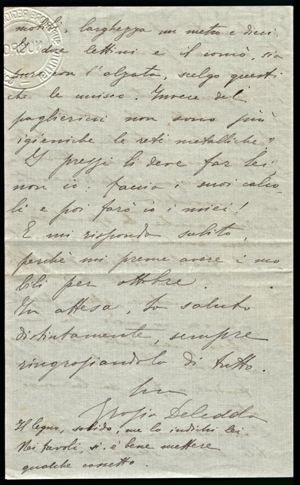 mobili larghezza un metro e dieci.
I due lettini e il comò, sia
pure con l'alzata, scelgo questi
che le unisco. Invece del
pagliericci non sono più
igieniche le reti metalliche?
I prezzi li deve far lei
non io: faccia i suoi calco-
li e poi farò io i miei!
E mi risponda subito,
perché mi preme avere i mo-
bili per ottobre.
In attesa, la saluto
distintamente, sempre
ringraziandola di tutto.
Sua
Grazia Deledda
Il legno, solido, me lo indichi lei.
Nei tavoli, si è bene mettere
qualche cassetto.